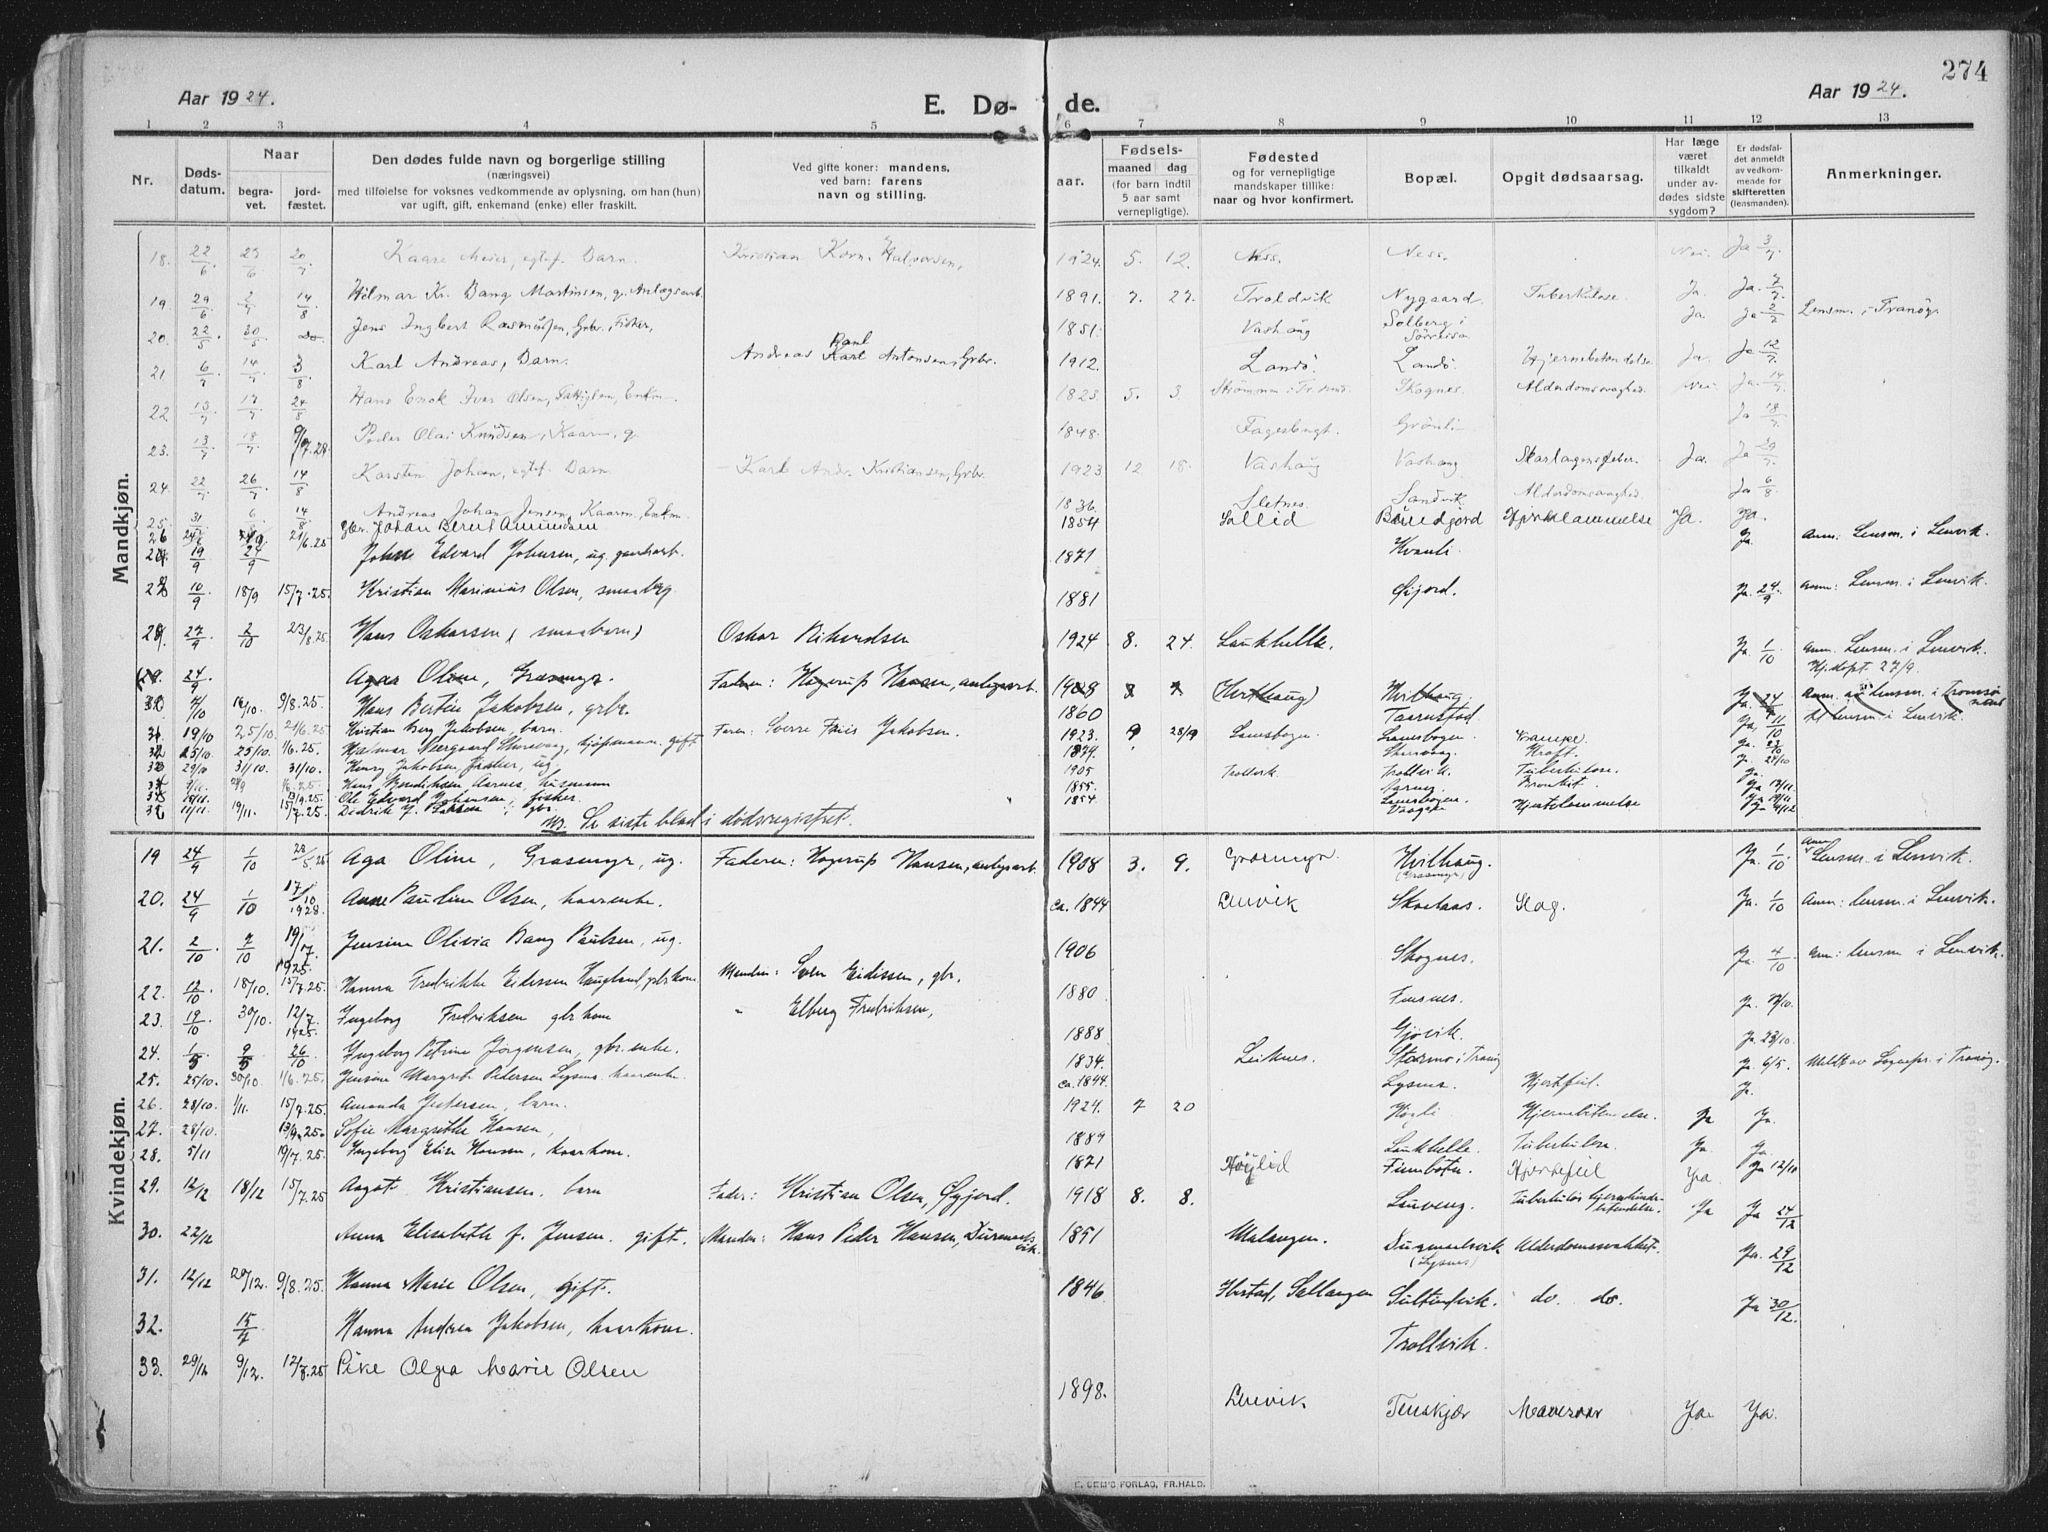 274
Aar 1924.
E. Dø- de.
Aar 1924.
1 2 3 4 5 6 7 8 9 10 11 12 13
Nr.
Dødsdatum.
Naar
begravet.
jordfæstet.
Den dødes fulde navn og borgerlige stilling
(næringsvei)
med tilføielse for voksnes vedkommende av oplysning, om han (hun)
var ugift, gift, enkemand (enke) eller fraskilt.
Ved gifte koner: mandens,
ved barn: farens
navn og stilling.
aar.
Fødsels-
maaned dag
(for barn indtil
5 aar samt
vernepligtige).
Fødested
og for vernepligtige
mandskaper tillike:
naar og hvor konfirmert.
Bopæl.
Opgit dødsaarsag.
Har læge
været
tilkaldt
under av-
dødes sidste
sygdom?
Er dødsfal-
det anmeldt
av vedkom-
mende for
skifteretten
(lensmanden).
Anmerkninger.
Mandkjøn.
18. 22/6 Kaare Meier, egtef. Barn. Kristian Korn. Halvorsen, 1924. 5. 12. Ness. Ness. Nei. Ja 3/7
19 29/6 2/7 14/8 Hilmar Kr. Bang Martinsen, g. Anlægsarb. 1891. 7. 27. Troldvik Nygaard Tuberkulose. Ja. Ja. 7/7
20. 22/5 30/5 do Jens Ingbert Rasmussen, Grbr., Fisker, 1851. Vashaug Solberg i Sørreisa Ja. Ja 2/7 Lensm. i Tranøy.
21 6/7 14/7 3/8 Karl Andreas, Barn. Andreas Karl Antonsen, Grbr. 1912. Landø. Landø. Hjernebetændelse Ja. Ja 12/7
22 13/7 17/7 24/8 Hans Enok Iver Olsen, Fattiglem, Enkm. 1823. 5. 3. Skognes. Alderdomssvaghed. Nei. Ja. 14/7
23. 13/7 18/7 9/7.28. Peder Olai Knudsen, Kaarm, g. 1848. Fagerbugt. Grønli Ja 18/7
24. 22/7 26/7 14/8 Karsten Johan, egtef. Barn. Karl Andr. Kristiansen, Grbr. 1923 12 18. Vashaug Vashaug Skarlagensfeber. Ja. Ja 29/7
25. 31/7 6/8 14/8 Andreas Johan Jensen, Kaarm., Enkm. 1836. Sletnes Sandvik Alderdomssvaghed Ja 6/8
26 21/6.25 Johan Bernt Amundsen 1854 Sollid Ja. Ja.
19/9 24/9 Johan Edvard Johnsen, ug. 1871 Kvanli. Ja. Anm. Lensm. i Lenvik.
28 10/9 18/9 15/7.25. Kristian Marinius Olsen, smaabrg. 1881 Øijord. Ja. 24/9 Anm: Lensm. i Lenvik.
29. 27/9 2/10 23/8.25. Hans Oskarsen (smaabarn) Oskar Rikardsen 1924 8. 24. Laukhelle. Ja 1/10 Anm. Lensm. i Lenvik. Hj.døpt 27/9.
24/9 Aga Oline, Grasmyr. Faderen: Hagerup Hansen, anlegsarb. 1908 3 9 (Kvithaug) Kvithaug. Ja 24/9 Anm. av lensm. i Tromsøsund
7/10 14/10. 9/8.25. Hans Bertin Jakobsen, grbr. 1860 Taarnstad. Ja, 11/10 lensm. i Lenvik.
31. 19/10 25/10 21/6.25 Kristian Berg Jakobsen, barn. Faren: Sverre Friis Jakobsen. 1923. 9 28/9 Lanesbogen. Lanesbogen. Krampe. Ja. 27/10
25/10. 25/10 1/6.25. Hjalmar Neergaard Storevaag, kjøpmann. gift 1874. Storevaag. Kræft.
29/10 31/10. 31/10. Henry Jakobsen, fisker, ug. 1905 Trollvik. Trollvik. Tuberkulose. Ja.
Hans Bendiksen, Aarnes, husmann 1855. Bronkit. Ja 13/11
13/9.25. Ole Edvard Johansen, fisker. Lanesbogen.
11/11. 19/11. 15/7.25. Didrik J. gbr. 1854. Vaagan Hjertelammelse Ja 4/12
NB. Se siste blad i dødsregistret.
Kvindekjøn.
19 24/9 1/10 28/5.25 Aga Oline, Grasmyr, ug. Faderen: Hagerup Hansen, anlegsarb. 1908 3. 9. Grasmyr Kvithaug. (Grasmyr) Ja. 1/10 Anm. Lensm. i Lenvik.
20. 24/9 1/10 17/10 1928. Anne Pauline Olsen, kaarenke. ca. 1844 Lenvik Skaelaas. Slag. Ja. 1/10 Anm: lensm. i Lenvik.
21. 2/10 7/10 19/7 1925. Jensine Olivia Bang Paulsen, ug. 1906 Skognes. Ja. 4/10 Anm: lensm i Lenvik.
22. 12/10 18/10. 15/7.25. Hanna Fredrikke Eidissen Haugland, gbrkone Manden: Sven Eidissen, gbr. 1880 Finsnes. Ja.
23. 19/10 30/10. 12/7. 1925. Ingeborg Fredriksen gbrkone " Elberg Fredriksen, 1888 Gjøvik. Ja. 23/10.
24. 1/5 9/5 26/10 Ingeborg Petrine Jørgensen, gbr.enke. 1834. Leiknes. Stormo i Tranøy Ja. 6/5. Meldt av Sognepr. i Tranøy.
25. 25/10. 30/10. 1/6.25. Jensine Margrete Pedersen Lysnes kaarenke. ca. 1844. Lysnes. Hjertfeil. Ja.
26. 28/10. 1/11. 15/7.25. Amanda Pedersen, barn. 1924. 7 20 Høgli Hjernebetendelse. Ja Ja.
27. 28/10. 13/9.25. Sofie Margrethe Hansen, 1889 Laukhelle. Tuberkulose. Ja. Ja.
28. 5/11 19/7.25. Ingeborg Elise Hansen, kaarkone. 1871 Høglid Finnbotn. Hjertefeil Ja Ja 12/11
29. 12/12 18/12 15/7.25 Aagot Kristiansen. barn Fader: Kristian Olsen, Øijord. 1918 8. 8. Lauveng. Tuberkuløs hjernehinde- betendelse. Ja Ja 24/12
30. 22/12 Anna Elisabeth f. Jensen. gift. Manden: Hans Peder Hansen, Durmaalsvik. 1851 Malangen. Durmaalsvik (Lysnes) Alderdomssvakhet. Ja. 29/12
31. 12/12 20/12. 9/8.25. Hanna Marie Olsen, gift. 1846 Ibestad, Sallangen Sultindvik. do. do. Ja 30/12.
32. 15/7 Hanna Andrea Jakobsen, kaarkone. Trollvik.
33. 29/12 9/12. 12/7.25 Pike Olga Marie Olsen 1898. Lenvik Tenskjær Mavesaar Ja. Ja.
E. SEM'S FORLAG, FR.HALD.